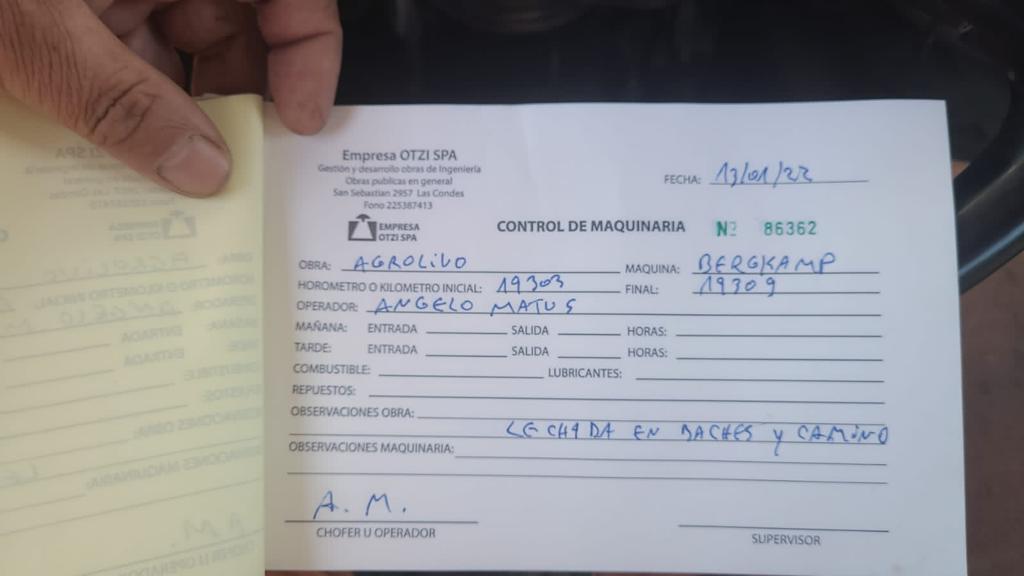 Empresa OTZI SPA
Gestión y desarrollo obras de Ingeniería
Obras publicas en general
San Sebastian 2957 Las Condes
Fono 225387413
EMPRESA
OTZI SPA
FECHA: 13/01/22
CONTROL DE MAQUINARIA Nº 86362
OBRA: AGROLIVO MAQUINA: BERGKAMP
HOROMETRO O KILOMETRO INICIAL: 19303 FINAL: 19309
OPERADOR: ANGELO MATUS
MAÑANA: ENTRADA SALIDA HORAS:
TARDE: ENTRADA SALIDA HORAS:
COMBUSTIBLE: LUBRICANTES:
REPUESTOS:
OBSERVACIONES OBRA:
LECHADA EN BACHES Y CAMINO
OBSERVACIONES MAQUINARIA:
A. M.
CHOFER U OPERADOR
SUPERVISOR